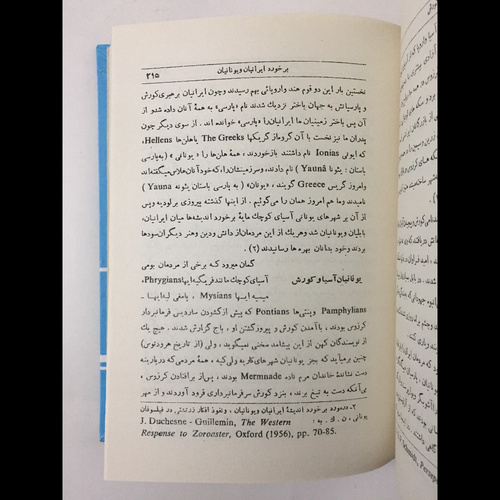 برخورد ایرانیان و یونانیان
۲۱۵
نخستین بار این دو قوم هند و اروپائی بهم رسیدند و چون ایرانیان برهبری کورش
و پارسیانش به جهان باختر نزدیک شدند نام «پارسی» به همهٔ آنان داده شد و از
آن پس باختر زمینیان ما ایرانیان را «پارسی» خوانده اند . از سوی دیگر چون
پدران ما نیز نخست با آن گروه از گریکها The Greeks یا هلن‌ها Hellens،
که ایونی Ionias نام داشتند بازخوردند، همهٔ هلن‌ها را «یونانی» (به پارسی
باستان : یئونا Yaunâ) نام دادند، و سرزمینشان را، که خود آنان هلاس میگفته‌اند
و امروز گریس Greece گویند، «یونان» (به پارسی باستان یئونه Yauna)
نامیدند و ما هم امروز همان را می‌گوئیم . از اینها گذشته پیروزی بر لودیه و پس
از آن بر شهرهای یونانی آسیای کوچک مایهٔ برخورد اندیشه‌ها میان ایرانیان،
بابلیان و یونانیان شد و هر یک از این مردمان از دانش و دین و هنر دیگران سودها
بردند و خود بدانان بهره‌ها رسانیدند (۲) .
گمان میرود که برخی از مردمان بومی
یونانیان آسیا و کورش
آسیای کوچک مانند فریگیه‌ایها Phrygians،
میسیه ایها Mysians ، پامفی لیه‌ایها ـ
Pamphylians وپنتی‌ها Pontians که پیش از گشودن ساردیس فرمانبردار
کرزوس بودند ، با آمدن کورش و پیروز گشتن او ، باج گزارش شدند . هیچ یک
از نویسندگان کهن از این پیشامد سخنی نمیگوید ، ولی (از تاریخ هرودتوس)
چنین برمیآید که بجز یونانیان شهرهای کاریه و لی‌کیه ، همهٔ مردمی که دربارینه
دست نشاندهٔ خاندان مرم ناده Mermnade بودند ، پس از بر افتادن کرزوس ،
بی‌آنکه دست به تیغ برند ، بنزد کورش سر فرمانبرداری فرود آوردند و از مهر
۲ـ درموده برخورد اندیشهٔ ایرانیان ویونانیان ، ونفوذ افکار زرتشتی در فیلسوفان
یونانی ، ن . ک . به :
J. Duchesne - Guillemin, The Western
Response to Zoroaster, Oxford (1956), pp. 70-85.